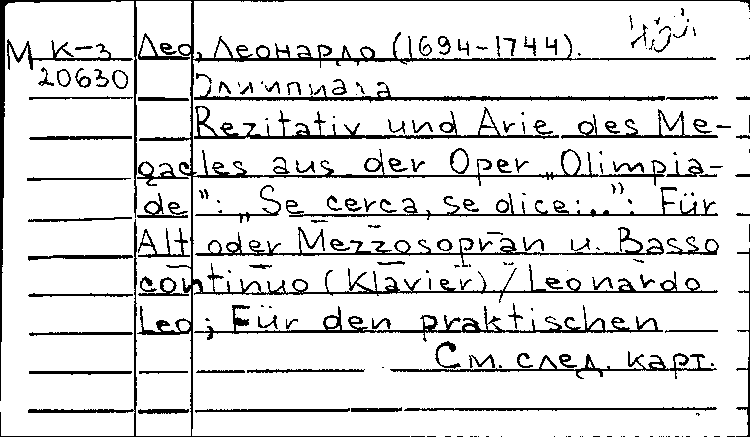 М К-3 Лео, Леонардо (1694-1744).
20630 Олимпиада
Rezitativ und Arie des Me-
gacles aus der Oper „Olimpia-
de": „Se cerca, se dice:..": Für
Alt oder Mezzosopran u. Basso
continuo (Klavier) / Leonardo
Leo; Für den praktischen
См. след. карт.